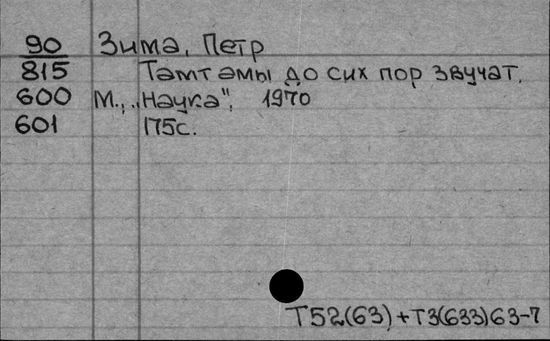 90 Зима, Петр
815 Тамтамы до сих пор звучат.
600 М., „Наука", 1970
601 175с.
Т52(63)+Т3(633)63-7